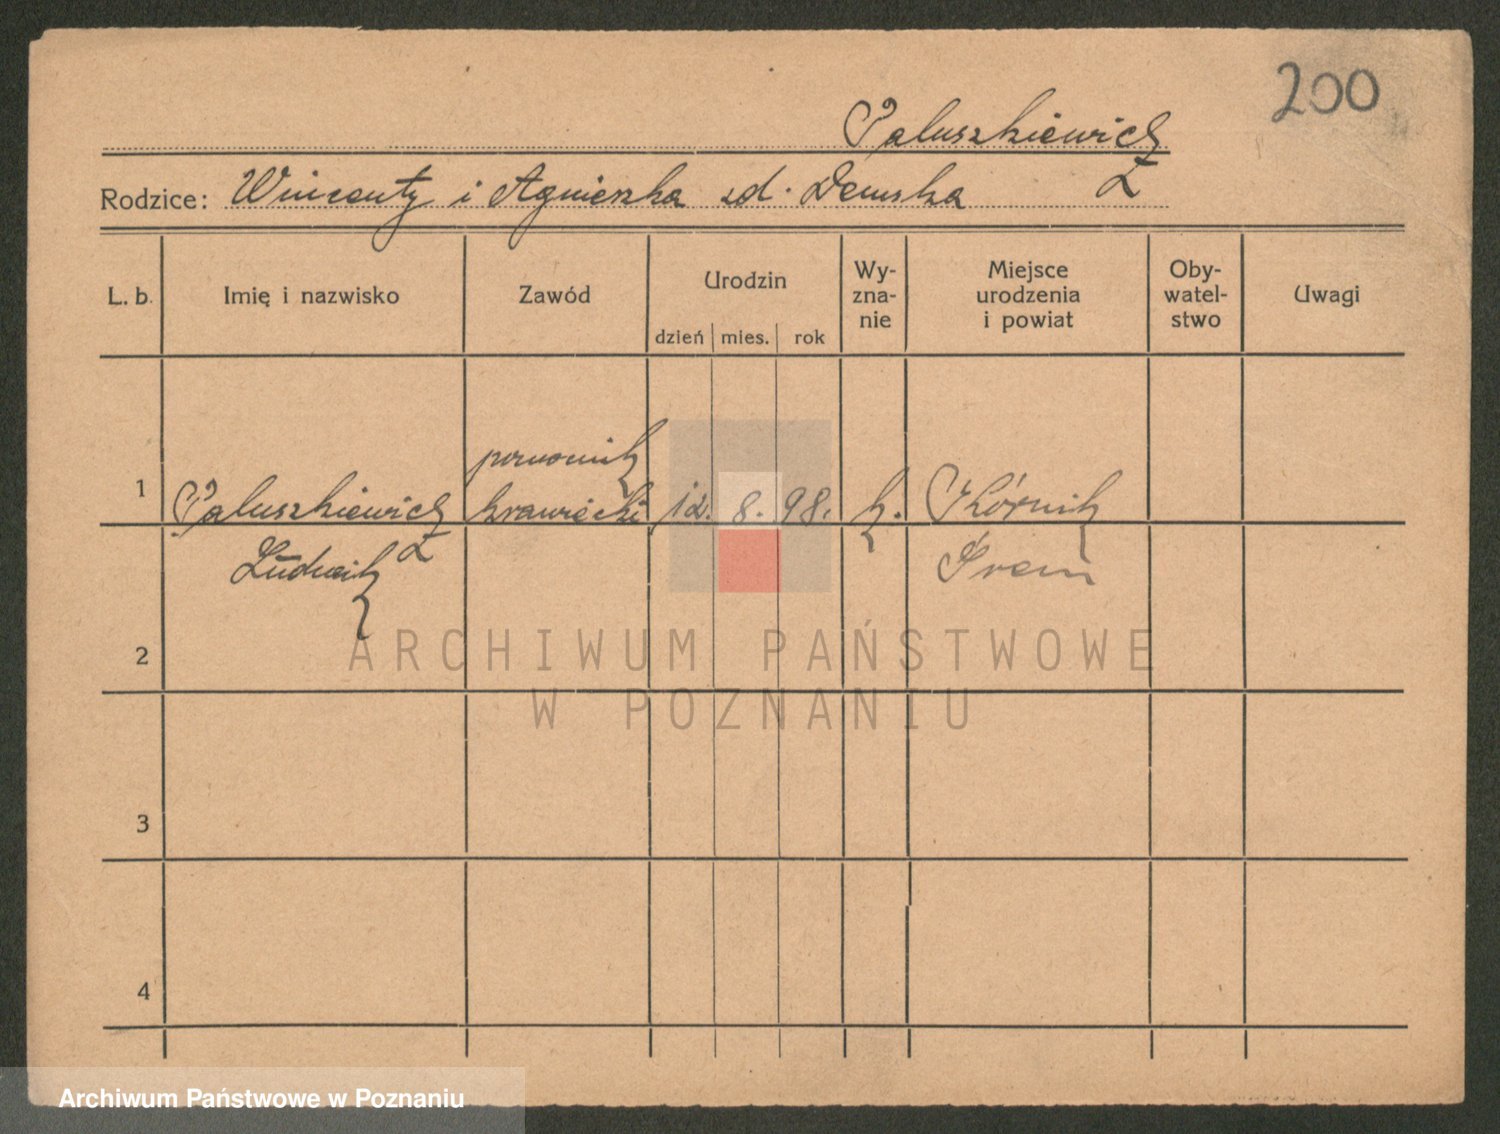 200
Paluszkiewicz
Rodzice: Wincenty i Agnieszka zd. Demska
L. b.
Imię i nazwisko
Zawód
Urodzin
dzień mies. rok
Wy-
zna-
nie
Miejsce
urodzenia
i powiat
Oby-
watel-
stwo
Uwagi
1
Paluszkiewicz
Ludwik
pomocnik
krawiecki
12. 8. 98.
k.
Kórnik
Śrem
2
3
4
ARCHIWUM PAŃSTWOWE
W POZNANIU
Archiwum Państwowe w Poznaniu